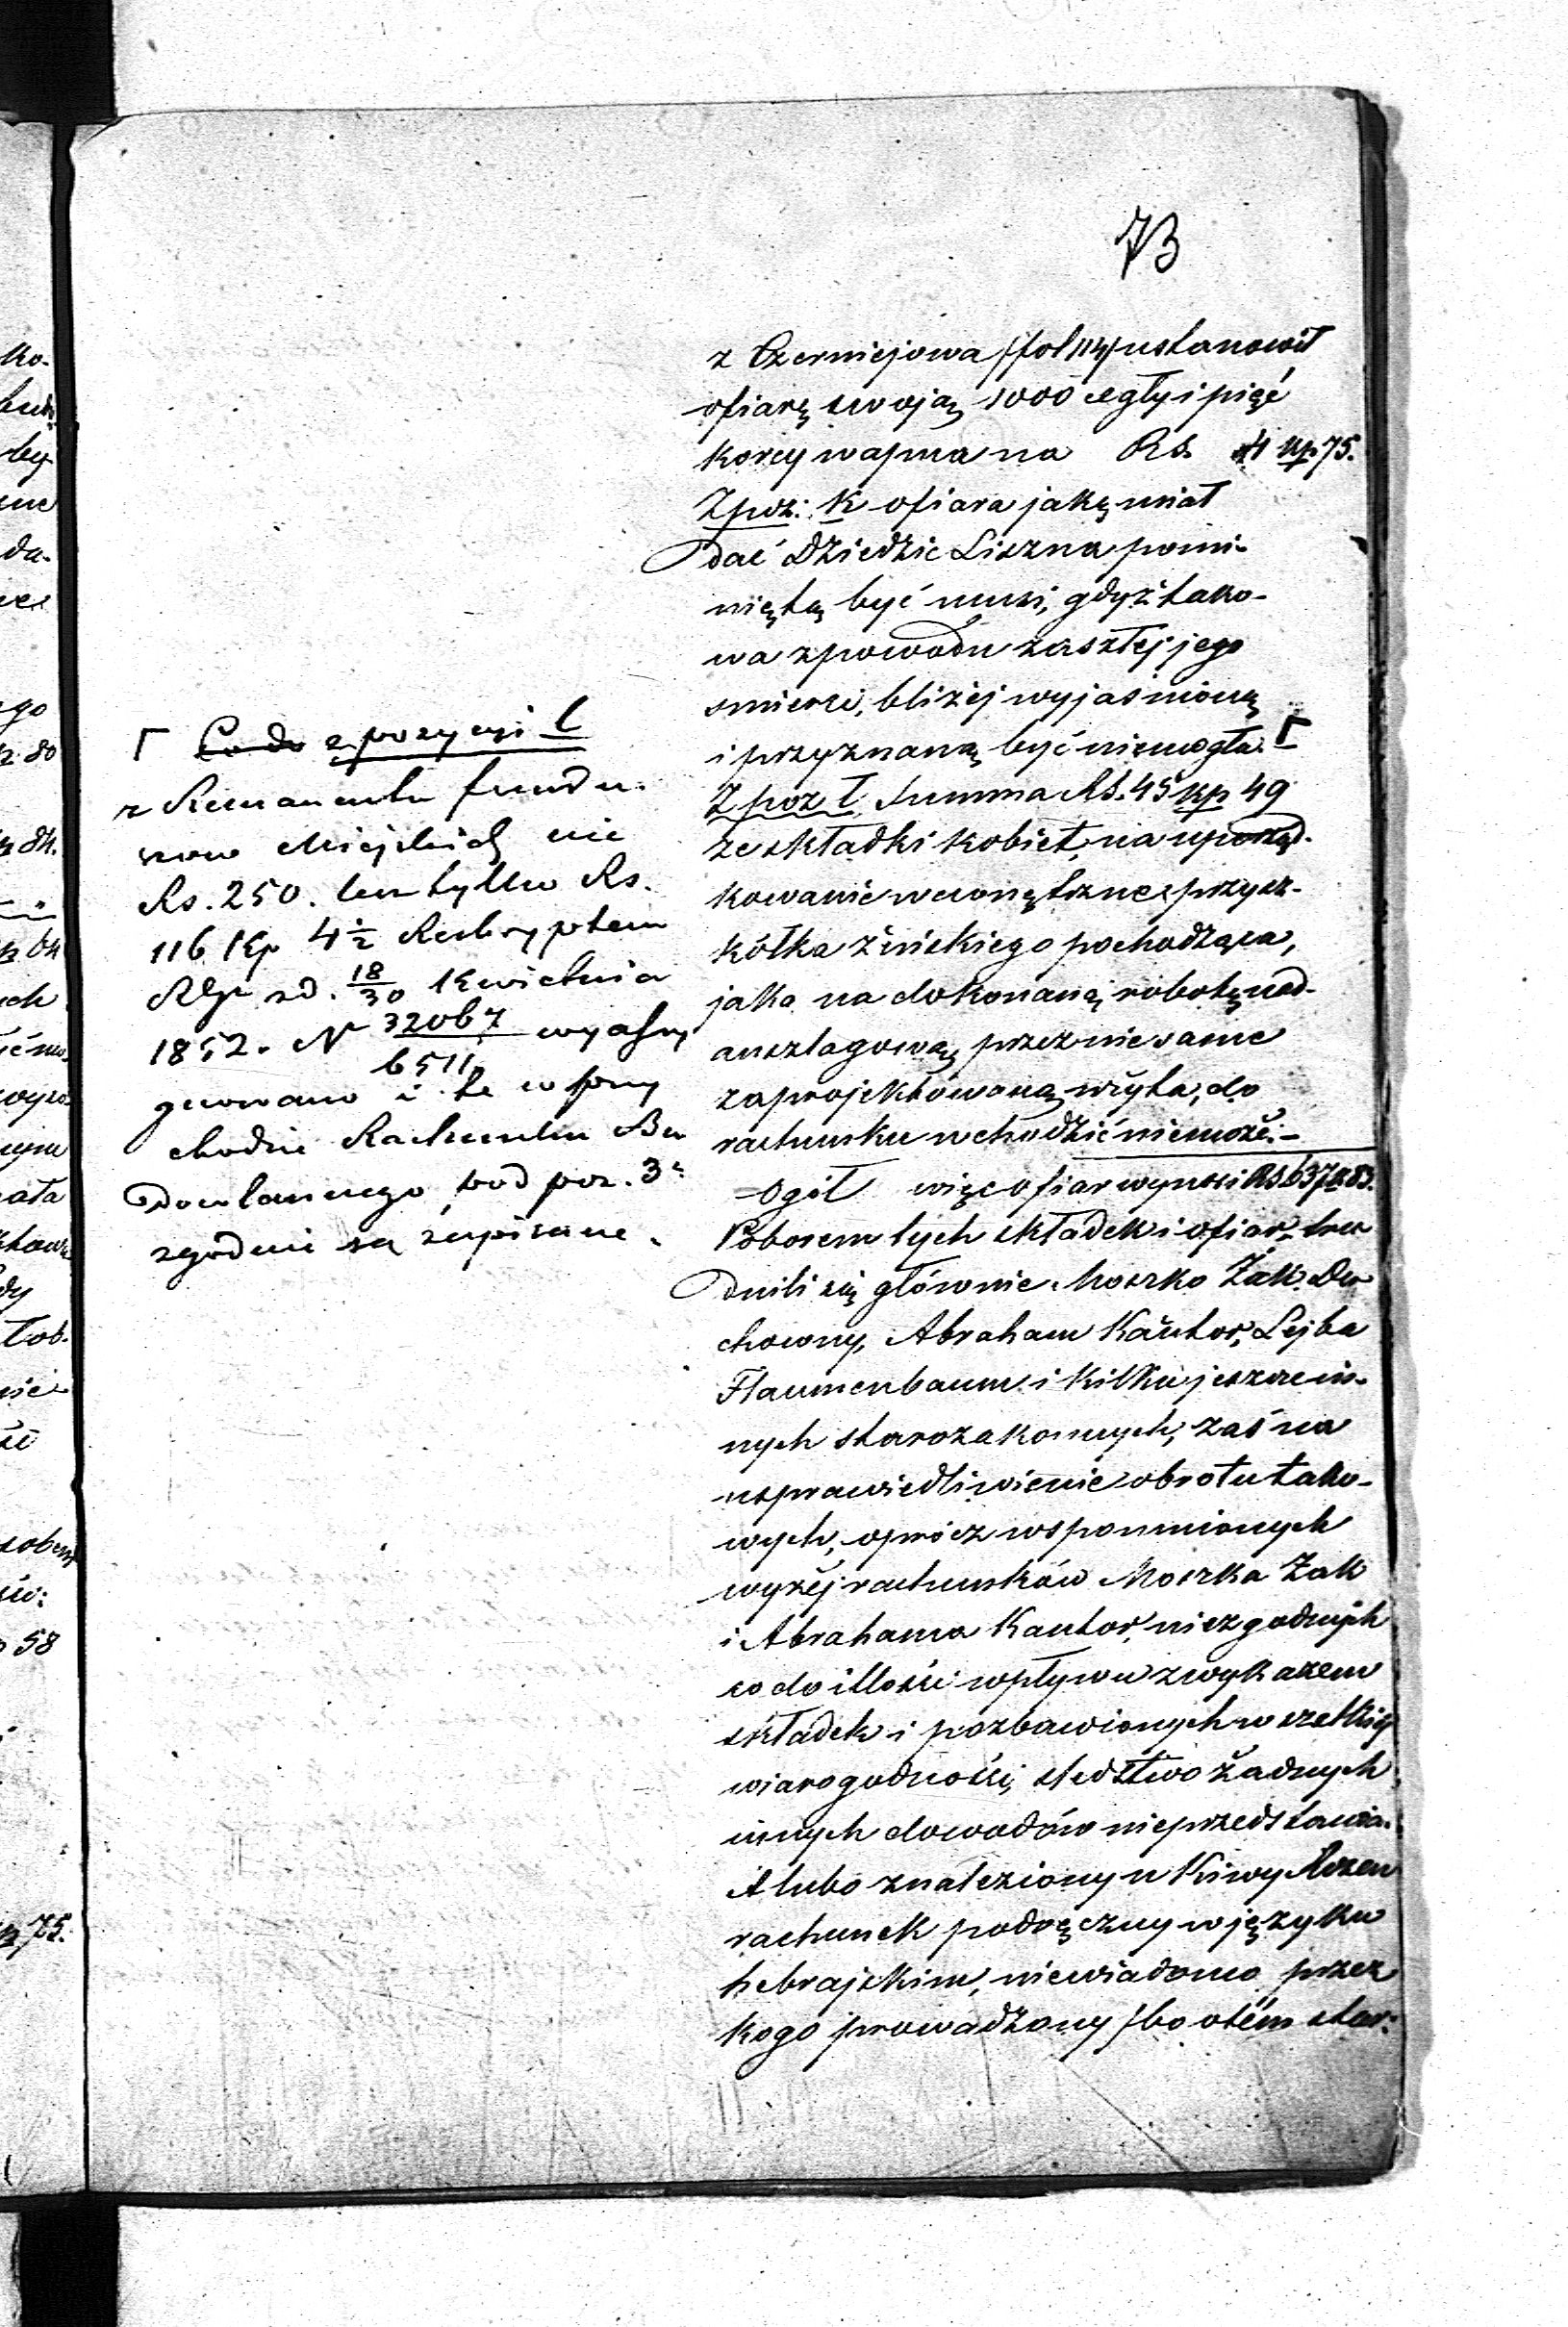 73
z Czerniejowa /fol 114/ ustanowił
ofiarę swoją 1000 cegły i pięć
korcy wapna na RS. 4 kp. 75.
Z poz: K ofiara jaką miał
dać Dziedzic Liszna pomi-
niętą być musi, gdyż tako-
wa z powodu zaszłej jego
smierci, bliżej wyjaśnioną
i przyznaną być niemogła. Γ
Z poz ł Summa RS. 45 kp 49
ze składki kobiet, na uporząd-
kowanie wewnętrzne przysz-
kółka żeńskiego pochodząca,
jako na dokonaną robotę nad-
anszlagową przez nie same
zaprojektowaną użyta, do
rachunku wchodzić niemoże.-
Ogół więc ofiar wynosi RS 637 k 83.
Poborem tych składek i ofiar tru
dnili się głównie Moszko Żak Du
chowny, Abraham Kantor, Lejba
Flaumenbaum i kilku jeszcze in-
nych starozakonnych, zaś na
usprawiedliwienie obrotu tako-
wych, oprócz wspomnionych
wyżej rachunków Moszka Żak
i Abrahama Kantor, niezgodnych
co do illości wpływu z wykazem
składek i pozbawionych wszelkiej
wiarogodności, śledztwo żadnych
innych dowodów nieprzedstawia.
A lubo znaleziony u Kiwy Rozen
rachunek podręczny w języku
hebrajskim, niewiadomo przez
kogo prowadzony /bo o tém star:
Γ Co do z pozycyi l
z Remanentu fundu-
szow Miejskich nie
Rs. 250. lecz tylko Rs.
116 Kp 4 1/2 Reskryptem
z d. 18/30 Kwietnia
1852. N 32067/6511 wyassy
gnowano i te w przy
chodzie Rachunku Bu
dowlanego pod poz. 3
zgodnie są zapisane.